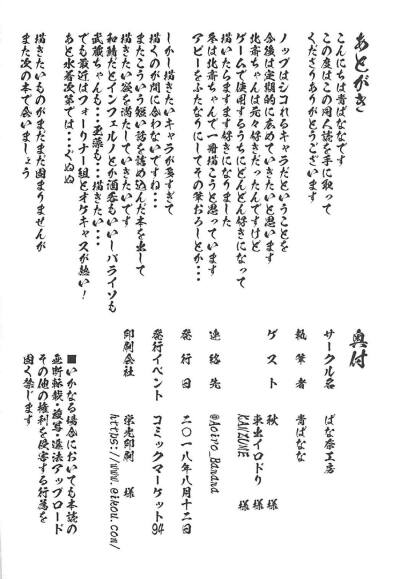 あとがき
こんにちは青ばななです
この度はこの同人誌を手に取って
くださりありがとうございます
ノッブはシコれるキャラだということを
今後は定期的に広めていきたいと思います
北斎ちゃんは元々好きだったんですけど
ゲームで使用するうちにどんどん好きになって
描いたらますます好きになりました
冬は北斎ちゃんで一冊描こうと思っています
アビーをふたなりにしてその筆おろしとか・・・
しかし描きたいキャラが多すぎて
描くのが間に合わないですね・・・
またこういう短い話を詰め込んだ本を出して
描きたい欲を満たしていきたいです
和鯖だとインフェルノとか酒呑もいいしパライソも
武蔵ちゃんも・・・玉藻も・・・描きたい・・・
でも最近はフォーリナー組とオケキャスが熱い！
あと水着次第では・・・くぬぬ
描きたいものがまだまだ固まりませんが
また次の本で会いましょう
奥付
サークル名 ばな奈工房
執筆者 青ばなな
ゲスト 秋 様
東出イロドリ 様
KANZUME 様
連絡先 @Aoiro_Banana
発行日 二〇一八年八月十二日
発行イベント コミックマーケット94
印刷会社 栄光印刷 様
https://www.eikou.com/
■いかなる場合においても本誌の
無断転載・複写・違法アップロード
その他の権利を侵害する行為を
固く禁じます